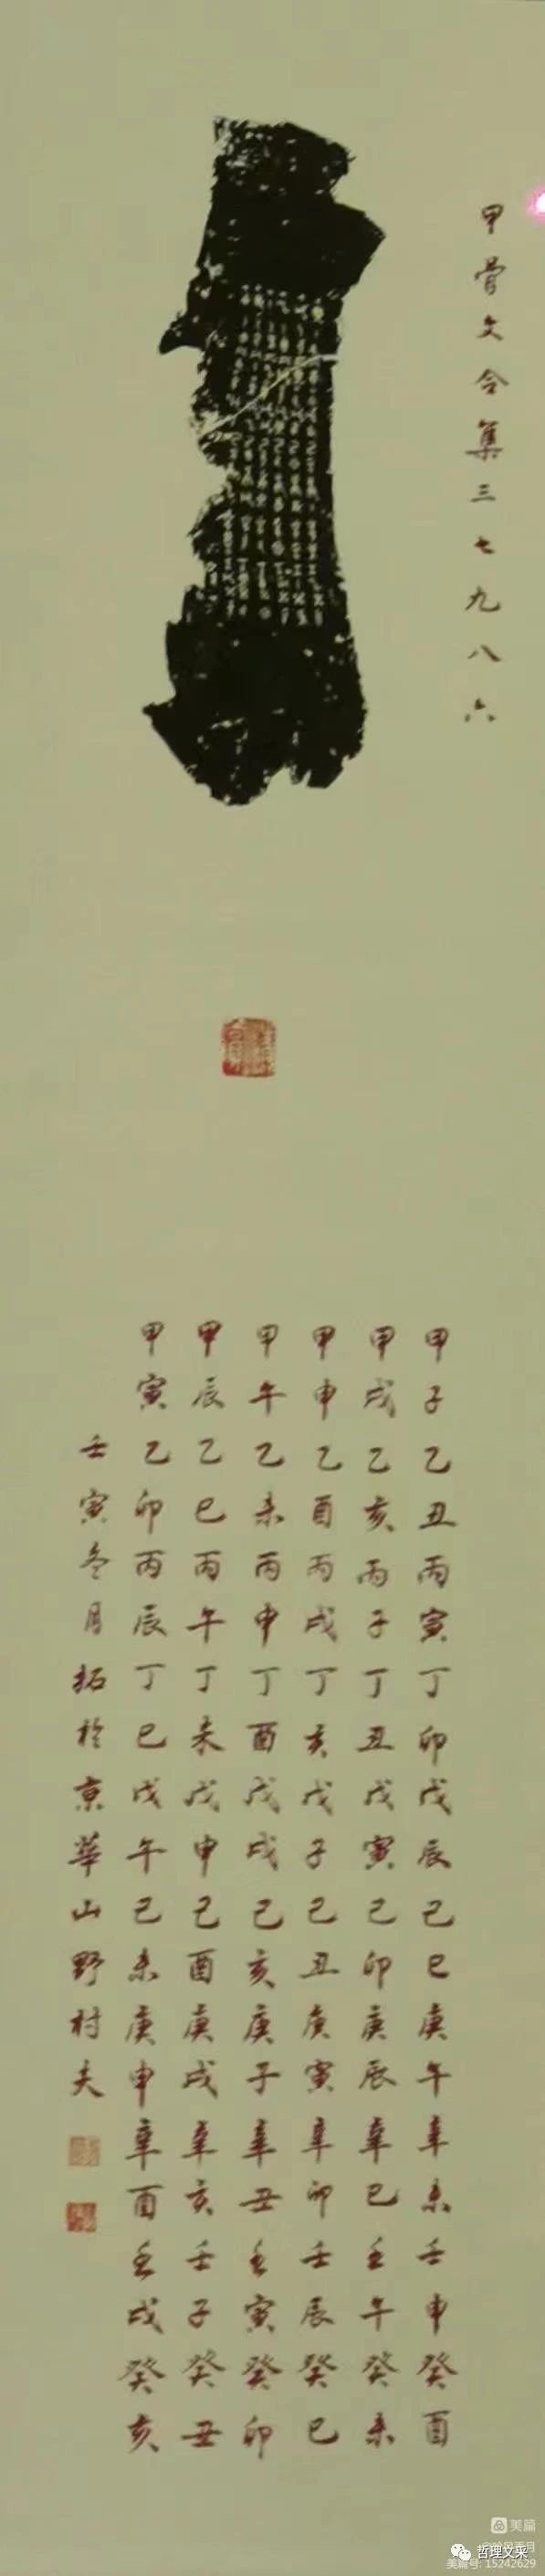 甲骨文合集三七九八六
甲子乙丑丙寅丁卯戊辰己巳庚午辛未壬申癸酉
甲戌乙亥丙子丁丑戊寅己卯庚辰辛巳壬午癸未
甲申乙酉丙戌丁亥戊子己丑庚寅辛卯壬辰癸巳
甲午乙未丙申丁酉戊戌己亥庚子辛丑壬寅癸卯
甲辰乙巳丙午丁未戊申己酉庚戌辛亥壬子癸丑
甲寅乙卯丙辰丁巳戊午己未庚申辛酉壬戌癸亥
壬寅冬月拓於京華山野村夫
美篇
哲理文采
美篇号: 15242629